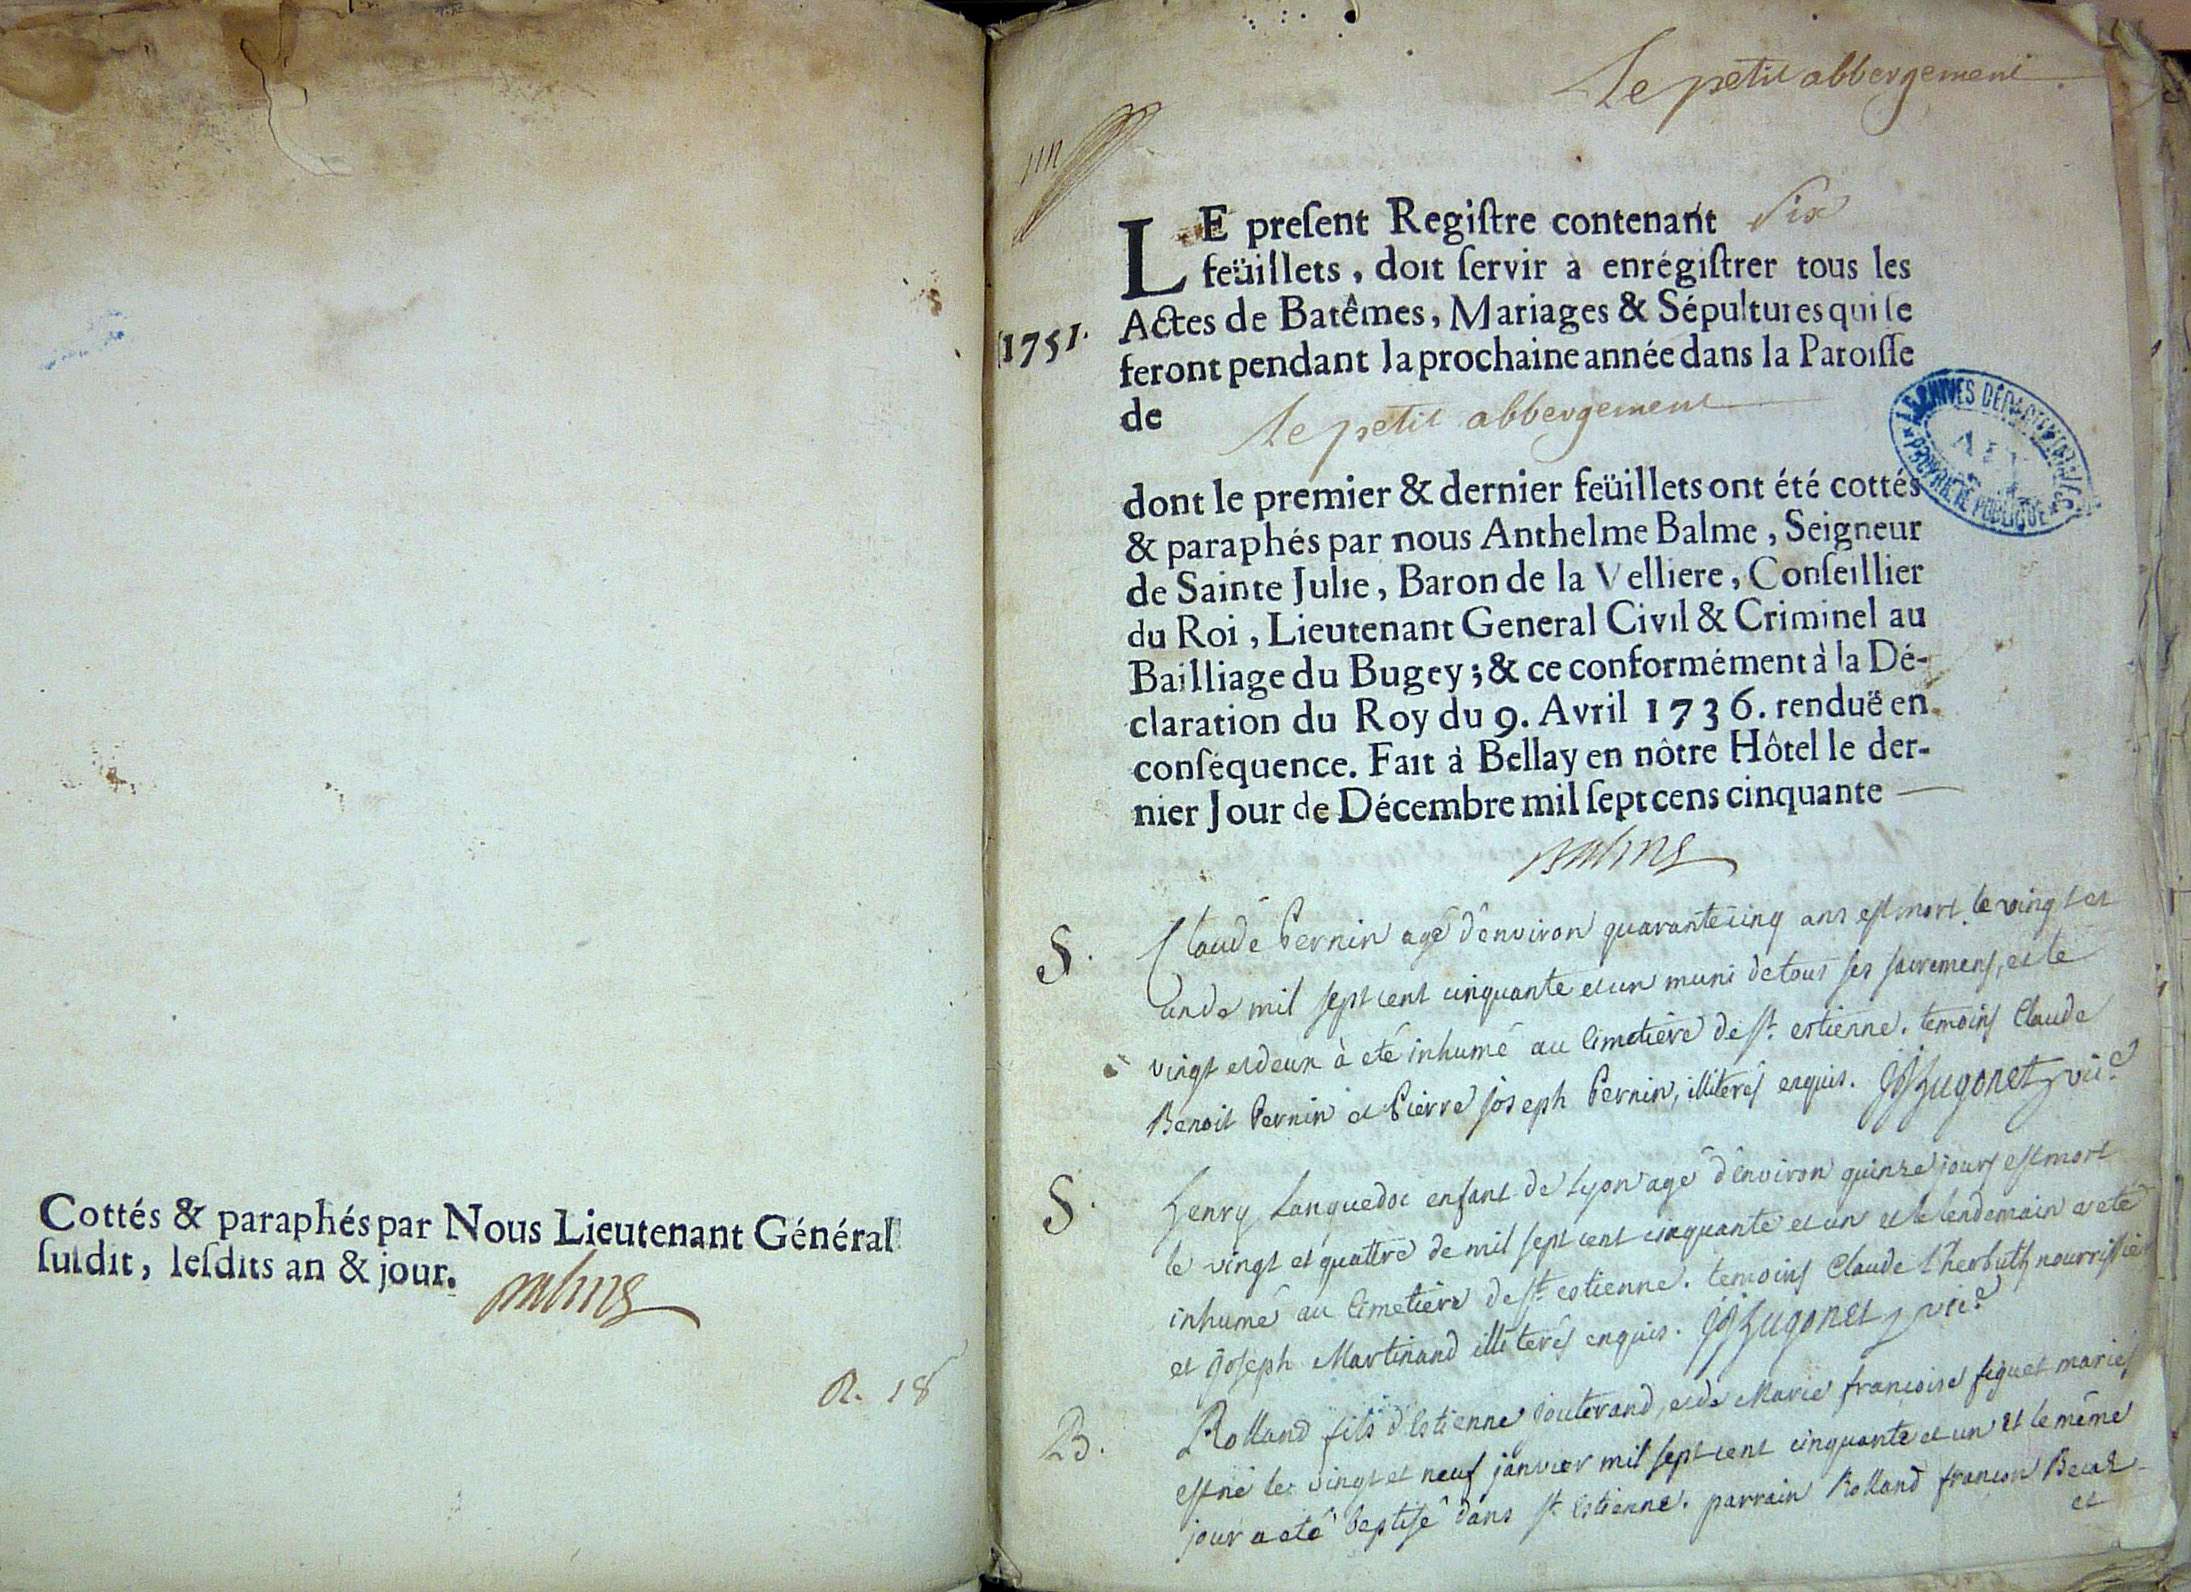 Cottés & paraphés par Nous Lieutenant Général
susdit, lesdits an & jour.
R. 18
Le petit abbergement
un
LE present Registre contenant six
feüillets, doit servir à enrégistrer tous les
Actes de Batêmes, Mariages & Sépultures qui se
1751.
feront pendant la prochaine année dans la Paroisse
de Le petit abbergement
ARCHIVES DÉPARTEMENTALES
AIN
PROPRIÉTÉ PUBLIQUE
dont le premier & dernier feüillets ont été cottés
& paraphés par nous Anthelme Balme, Seigneur
de Sainte Julie, Baron de la Velliere, Conseillier
du Roi, Lieutenant General Civil & Criminel au
Bailliage du Bugey; & ce conformément à la Dé-
claration du Roy du 9. Avril 1736. renduë en
conséquence. Fait à Bellay en nôtre Hôtel le der-
nier Jour de Décembre mil sept cens cinquante
Balme
S. Claude Pernin agé d'environ quarantecinq ans est mort le vingt et
un de mil sept cent cinquante et un muni de tous ses sacremens, et le
vingt et deux à eté inhumé au Cimetiere de st. estienne. temoins Claude
Benoit Pernin et Pierre joseph Pernin, illiterés enquis. Hugonet vic.e
S. henry Languedoc enfant de Lyon agé d'environ quinze jours est mort
le vingt et quattre de mil sept cent cinquante et un et le lendemain a eté
inhumé au Cimetiere de st. estienne. temoins Claude nourrissier
et Joseph Martinand illiterés enquis. Hugonet vic.e
B. Rolland fils d'Estienne jouterand, et de Marie francoise figuet mariés
est né le vingt et neuf janvier mil sept cent cinquante et un et le même
jour a eté baptisé dans st. Estienne. parrain Rolland
et